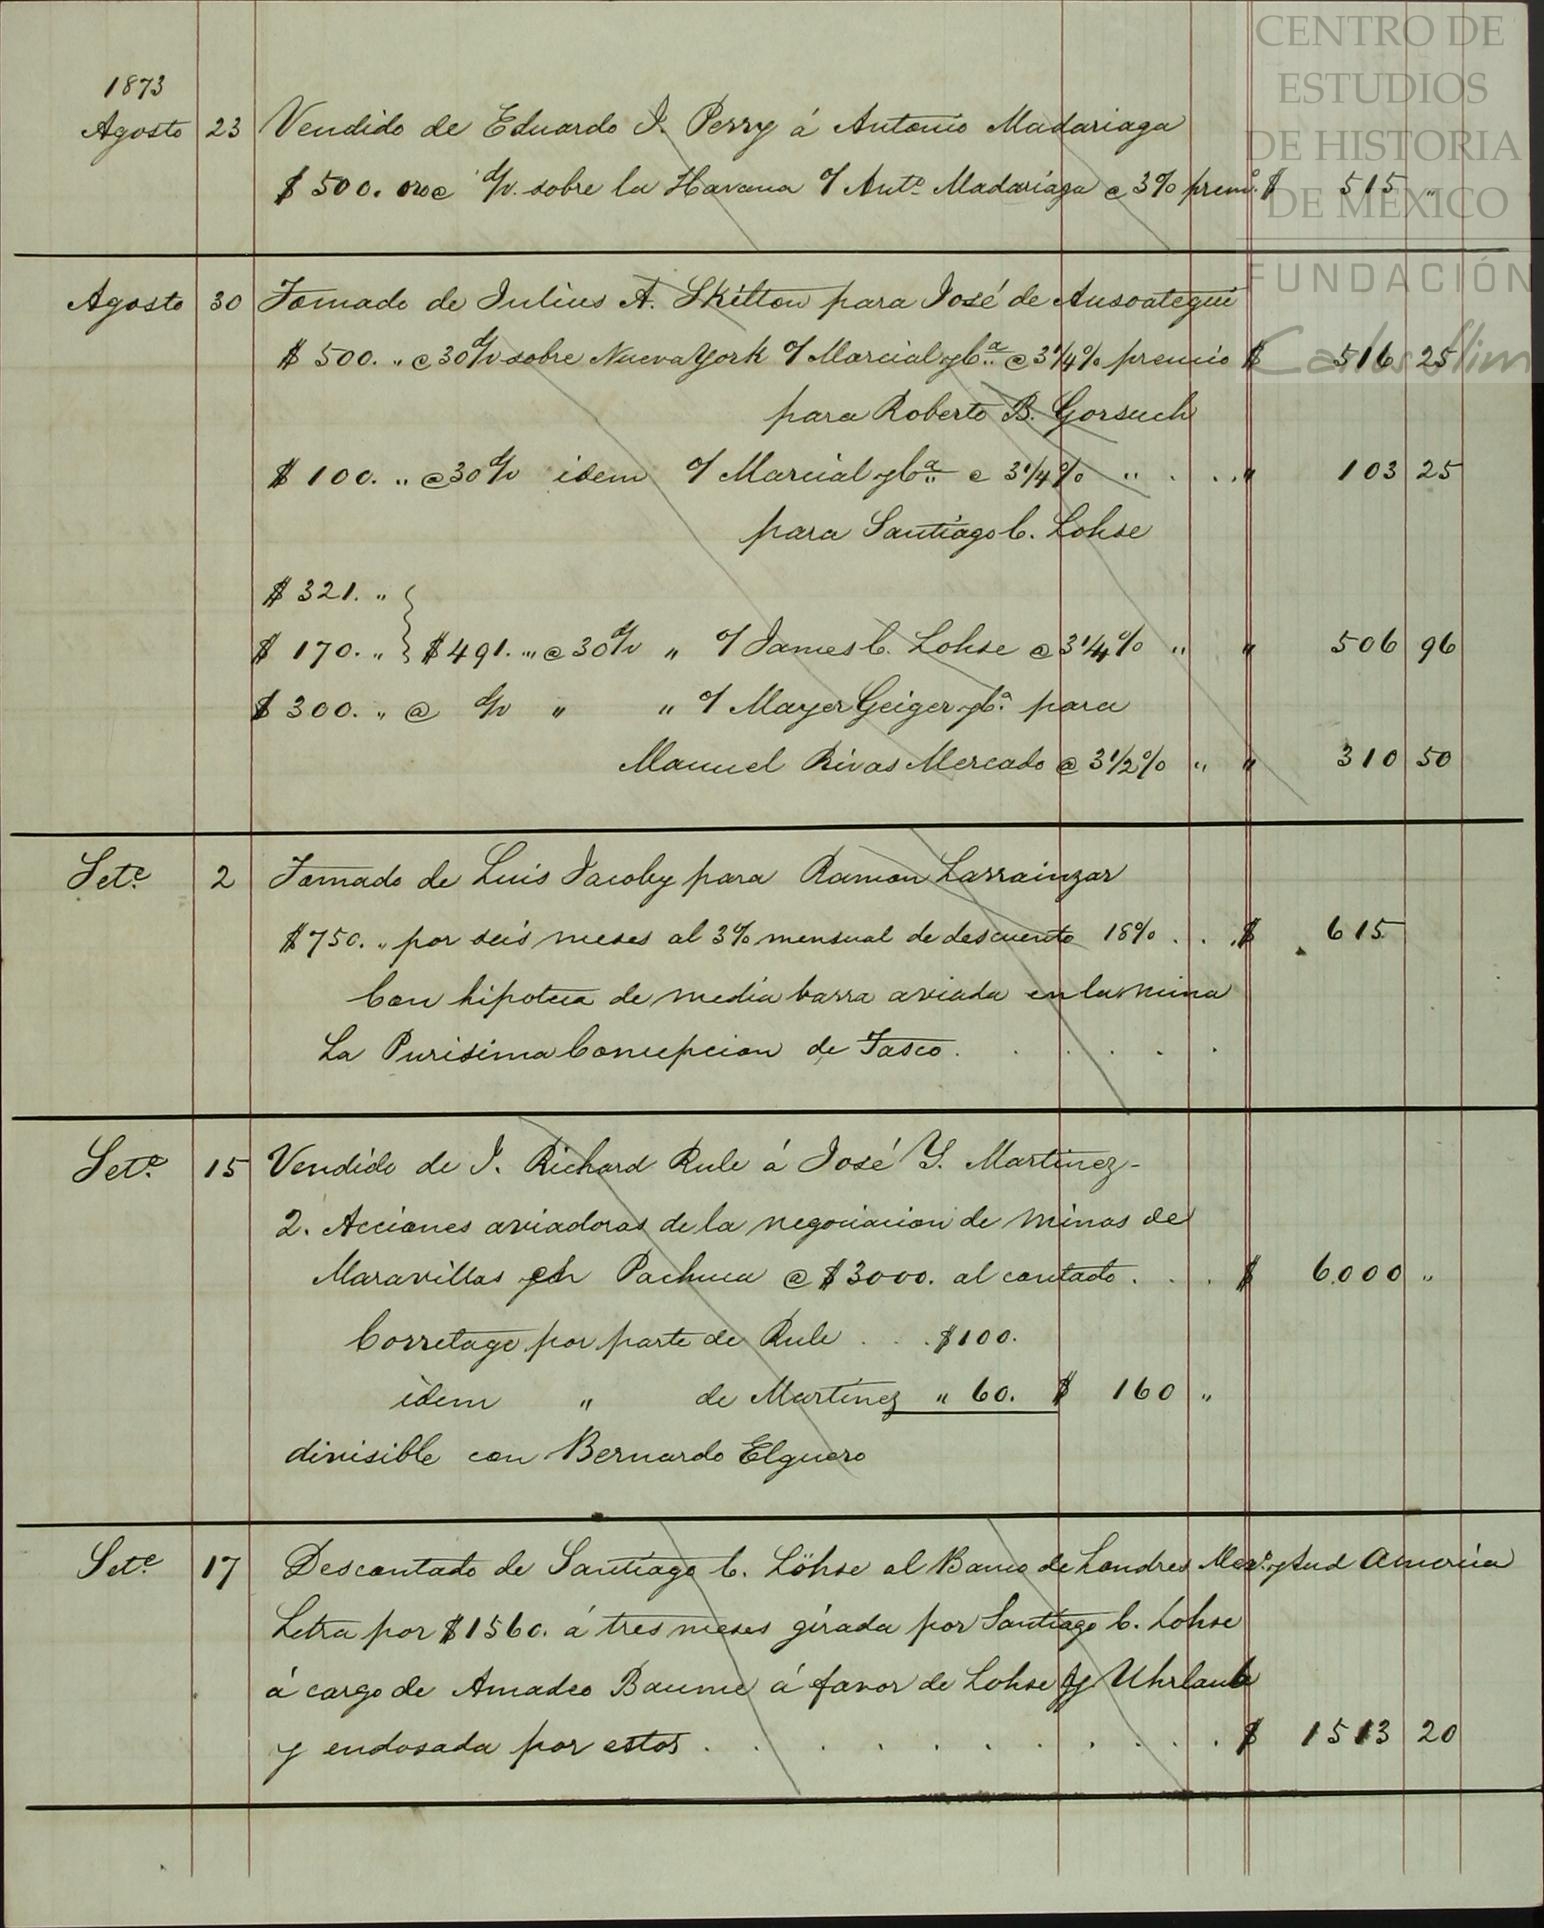 CENTRO DE
ESTUDIOS
DE HISTORIA
DE MÉXICO
FUNDACIÓN
Carlos Slim
1873
Agosto 23 Vendido de Eduardo J. Perry á Antonio Madariaga
$ 500. oro @ d/v. sobre la Havana o/ Anto. Madariaga @ 3% premo. $ 515 "
Agosto 30 Tomado de Julius A. Skilton para José de Ansoategui
$ 500. " @ 30 d/v sobre Nueva York o/ Marcial y Ca. @ 3 1/4 % premio $ 516 25
para Roberto B. Gorsuch
$ 100. " @ 30 d/v idem o/ Marcial y Ca. @ 3 1/4 % " . . . " 103 25
para Santiago C. Lohse
$ 321. "
$ 170. " } $ 491. " @ 30 d/v " o/ James C. Lohse @ 3 1/4 % " " 506 96
$ 300. " @ d/v " " o/ Mayer Geiger y Ca. para
Manuel Rivas Mercado @ 3 1/2 % " " 310 50
Sete. 2 Tomado de Luis Jacoby para Ramon Larrainzar
$ 750. " por seis meses al 3% mensual de descuento 18% . . . $ 615
Con hipoteca de media barra aviada en la mina
La Purisima Concepcion de Tasco . . . . . .
Sete. 15 Vendido de J. Richard Rule á José Y. Martinez -
2. Acciones aviadoras de la negociacion de minas de
Maravillas en Pachuca @ $ 3000. al contado . . . $ 6.000 "
Corretage por parte de Rule . . . $ 100.
idem " de Martinez " 60. $ 160 "
divisible con Bernardo Elguero
Sete. 17 Descontado de Santiago C. Löhse al Banco de Londres Mexo. y Sud America
Letra por $ 1560. á tres meses girada por Santiago C. Lohse
á cargo de Amadeo Baume á favor de Lohse y Uhrlaub
y endosada por estos . . . . . . . . . . $ 1513 20